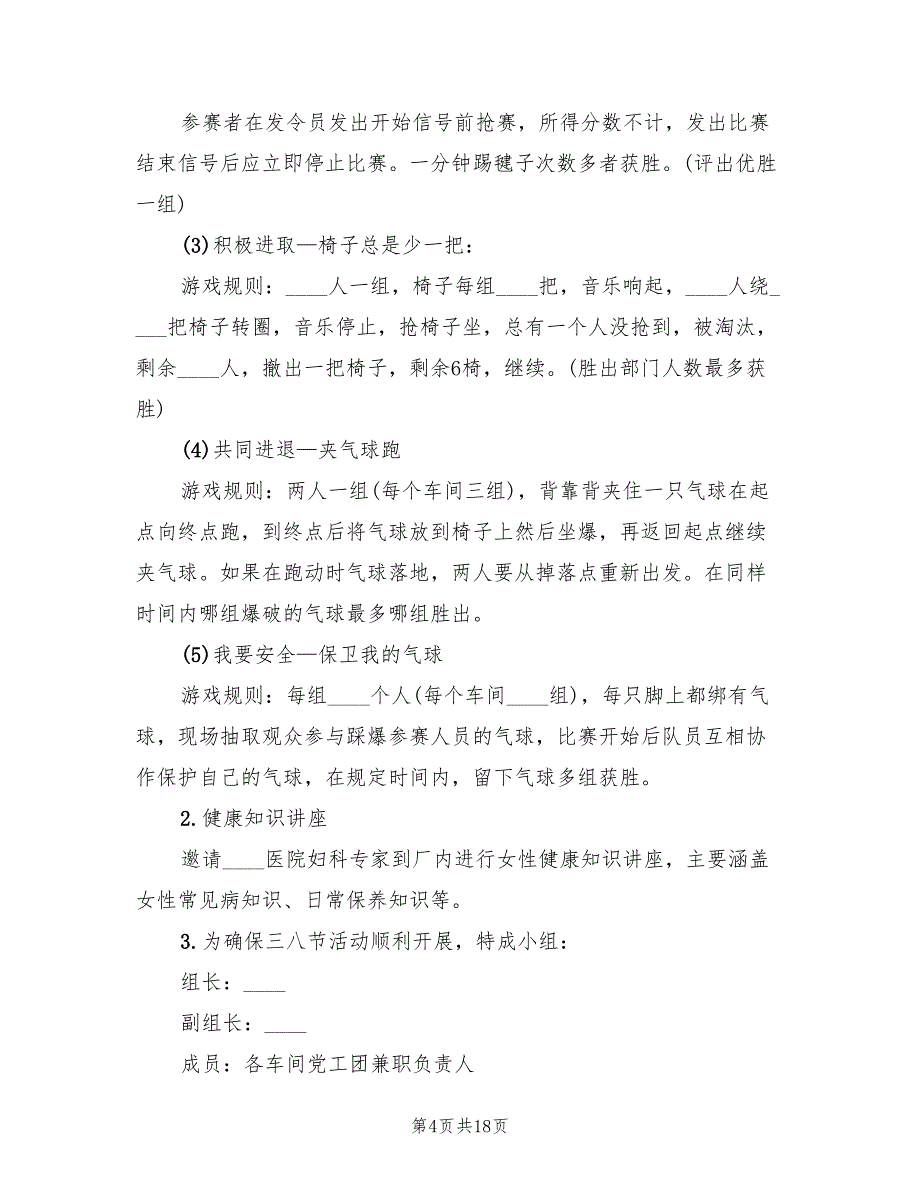 参赛者在发令员发出开始信号前抢赛，所得分数不计，发出比赛
结束信号后应立即停止比赛。一分钟踢毽子次数多者获胜。(评出优胜
一组)
(3)积极进取—椅子总是少一把：
游戏规则：____人一组，椅子每组____把，音乐响起，____人绕_
___把椅子转圈，音乐停止，抢椅子坐，总有一个人没抢到，被淘汰，
剩余____人，撤出一把椅子，剩余6椅，继续。(胜出部门人数最多获
胜)
(4)共同进退—夹气球跑
游戏规则：两人一组(每个车间三组)，背靠背夹住一只气球在起
点向终点跑，到终点后将气球放到椅子上然后坐爆，再返回起点继续
夹气球。如果在跑动时气球落地，两人要从掉落点重新出发。在同样
时间内哪组爆破的气球最多哪组胜出。
(5)我要安全—保卫我的气球
游戏规则：每组____个人(每个车间____组)，每只脚上都绑有气
球，现场抽取观众参与踩爆参赛人员的气球，比赛开始后队员互相协
作保护自己的气球，在规定时间内，留下气球多组获胜。
2.健康知识讲座
邀请____医院妇科专家到厂内进行女性健康知识讲座，主要涵盖
女性常见病知识、日常保养知识等。
3.为确保三八节活动顺利开展，特成小组：
组长：____
副组长：____
成员：各车间党工团兼职负责人
第4页共18页